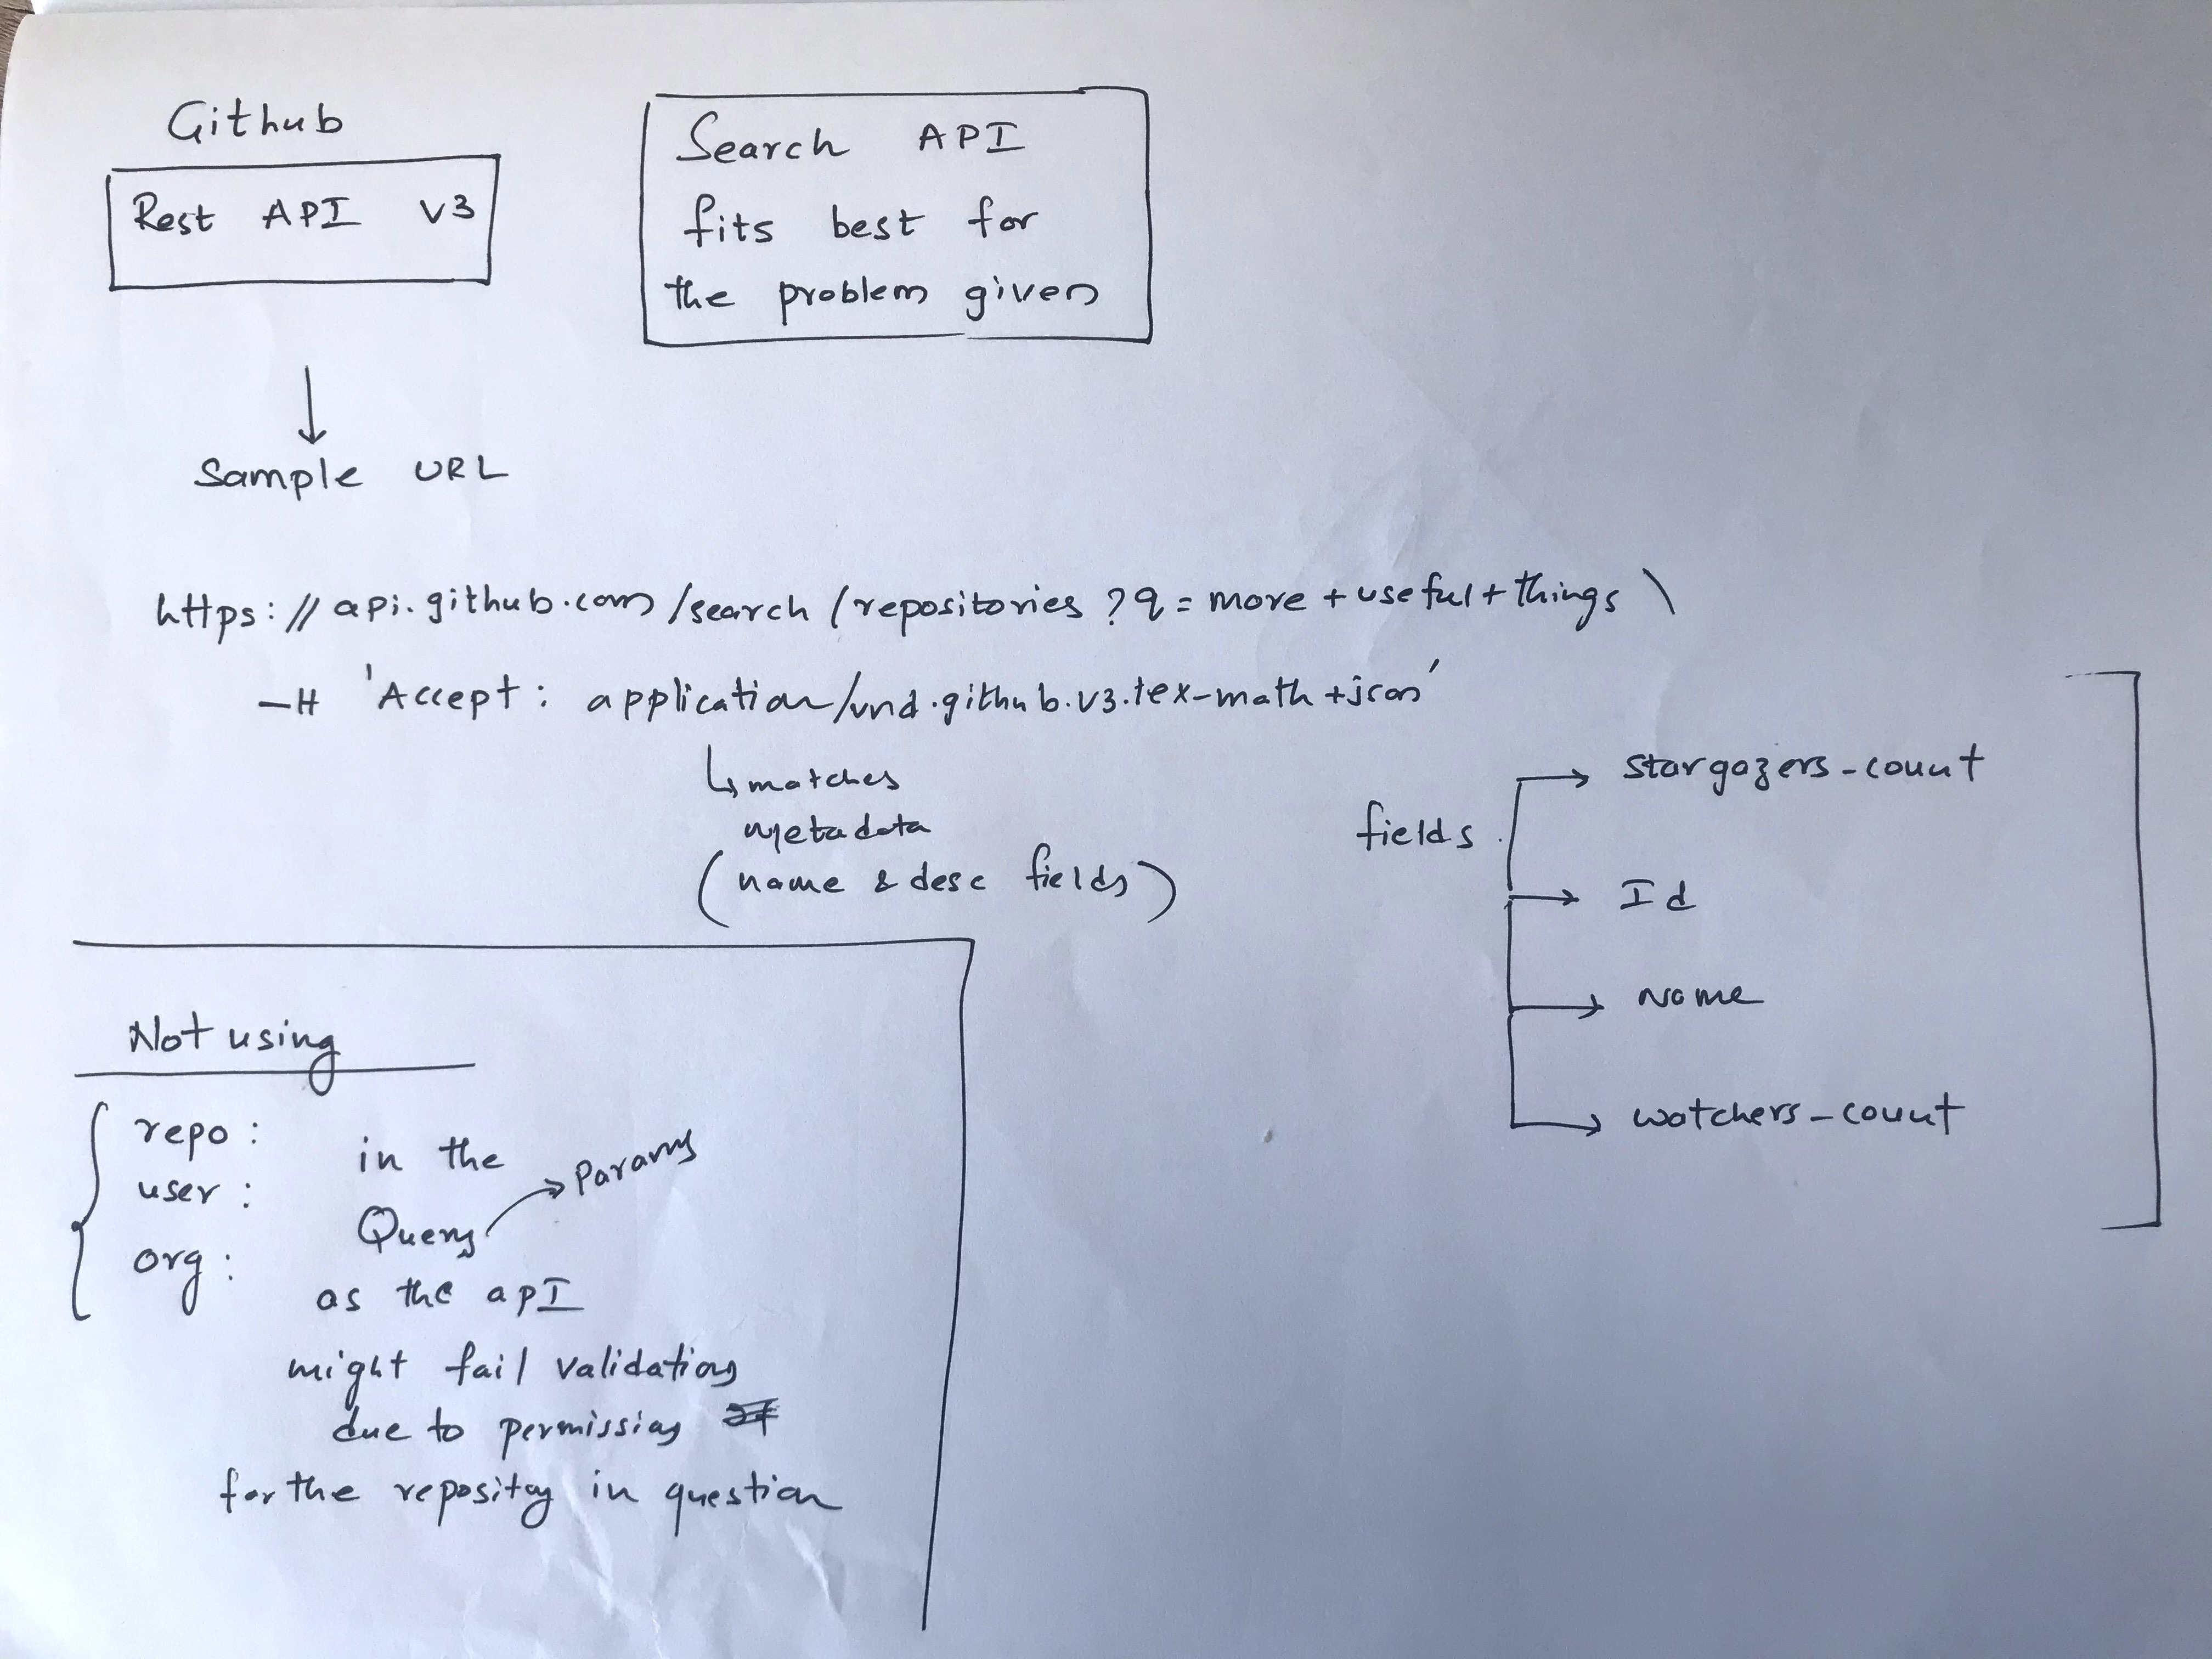 Github
Rest API v3
Search API
fits best for
the problem given
Sample URL
https://api.github.com/search/repositories?q=more+useful+things \
-H 'Accept: application/vnd.github.v3.tex-math+json'
matches
metadata
(name & desc fields)
fields
stargazers-count
Id
Name
watchers-count
Not using
repo:
user:
org:
in the
Query
Params
as the apI
might fail validation
due to permission
for the repository in question